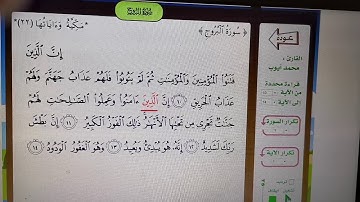 سورة البروج
﴿ سُورَةُ الْبُرُوجِ ﴾
*مَكِّيَّةٌ وَءَايَاتُهَا (٢٢)*
إِنَّ الَّذِينَ
فَتَنُوا الْمُؤْمِنِينَ وَالْمُؤْمِنَاتِ ثُمَّ لَمْ يَتُوبُوا فَلَهُمْ عَذَابُ جَهَنَّمَ وَلَهُمْ
عَذَابُ الْحَرِيقِ ١٠ إِنَّ الَّذِينَ ءَامَنُوا وَعَمِلُوا الصَّالِحَاتِ لَهُمْ
جَنَّاتٌ تَجْرِي مِن تَحْتِهَا الْأَنْهَارُ ذَٰلِكَ الْفَوْزُ الْكَبِيرُ ١١ إِنَّ بَطْشَ
رَبِّكَ لَشَدِيدٌ ١٢ إِنَّهُ هُوَ يُبْدِئُ وَيُعِيدُ ١٣ وَهُوَ الْغَفُورُ الْوَدُودُ ١٤
القارئ :
محمد أيوب
قراءة محددة
من الآية
إلى الآية
تكرار السورة
تكرار الآية